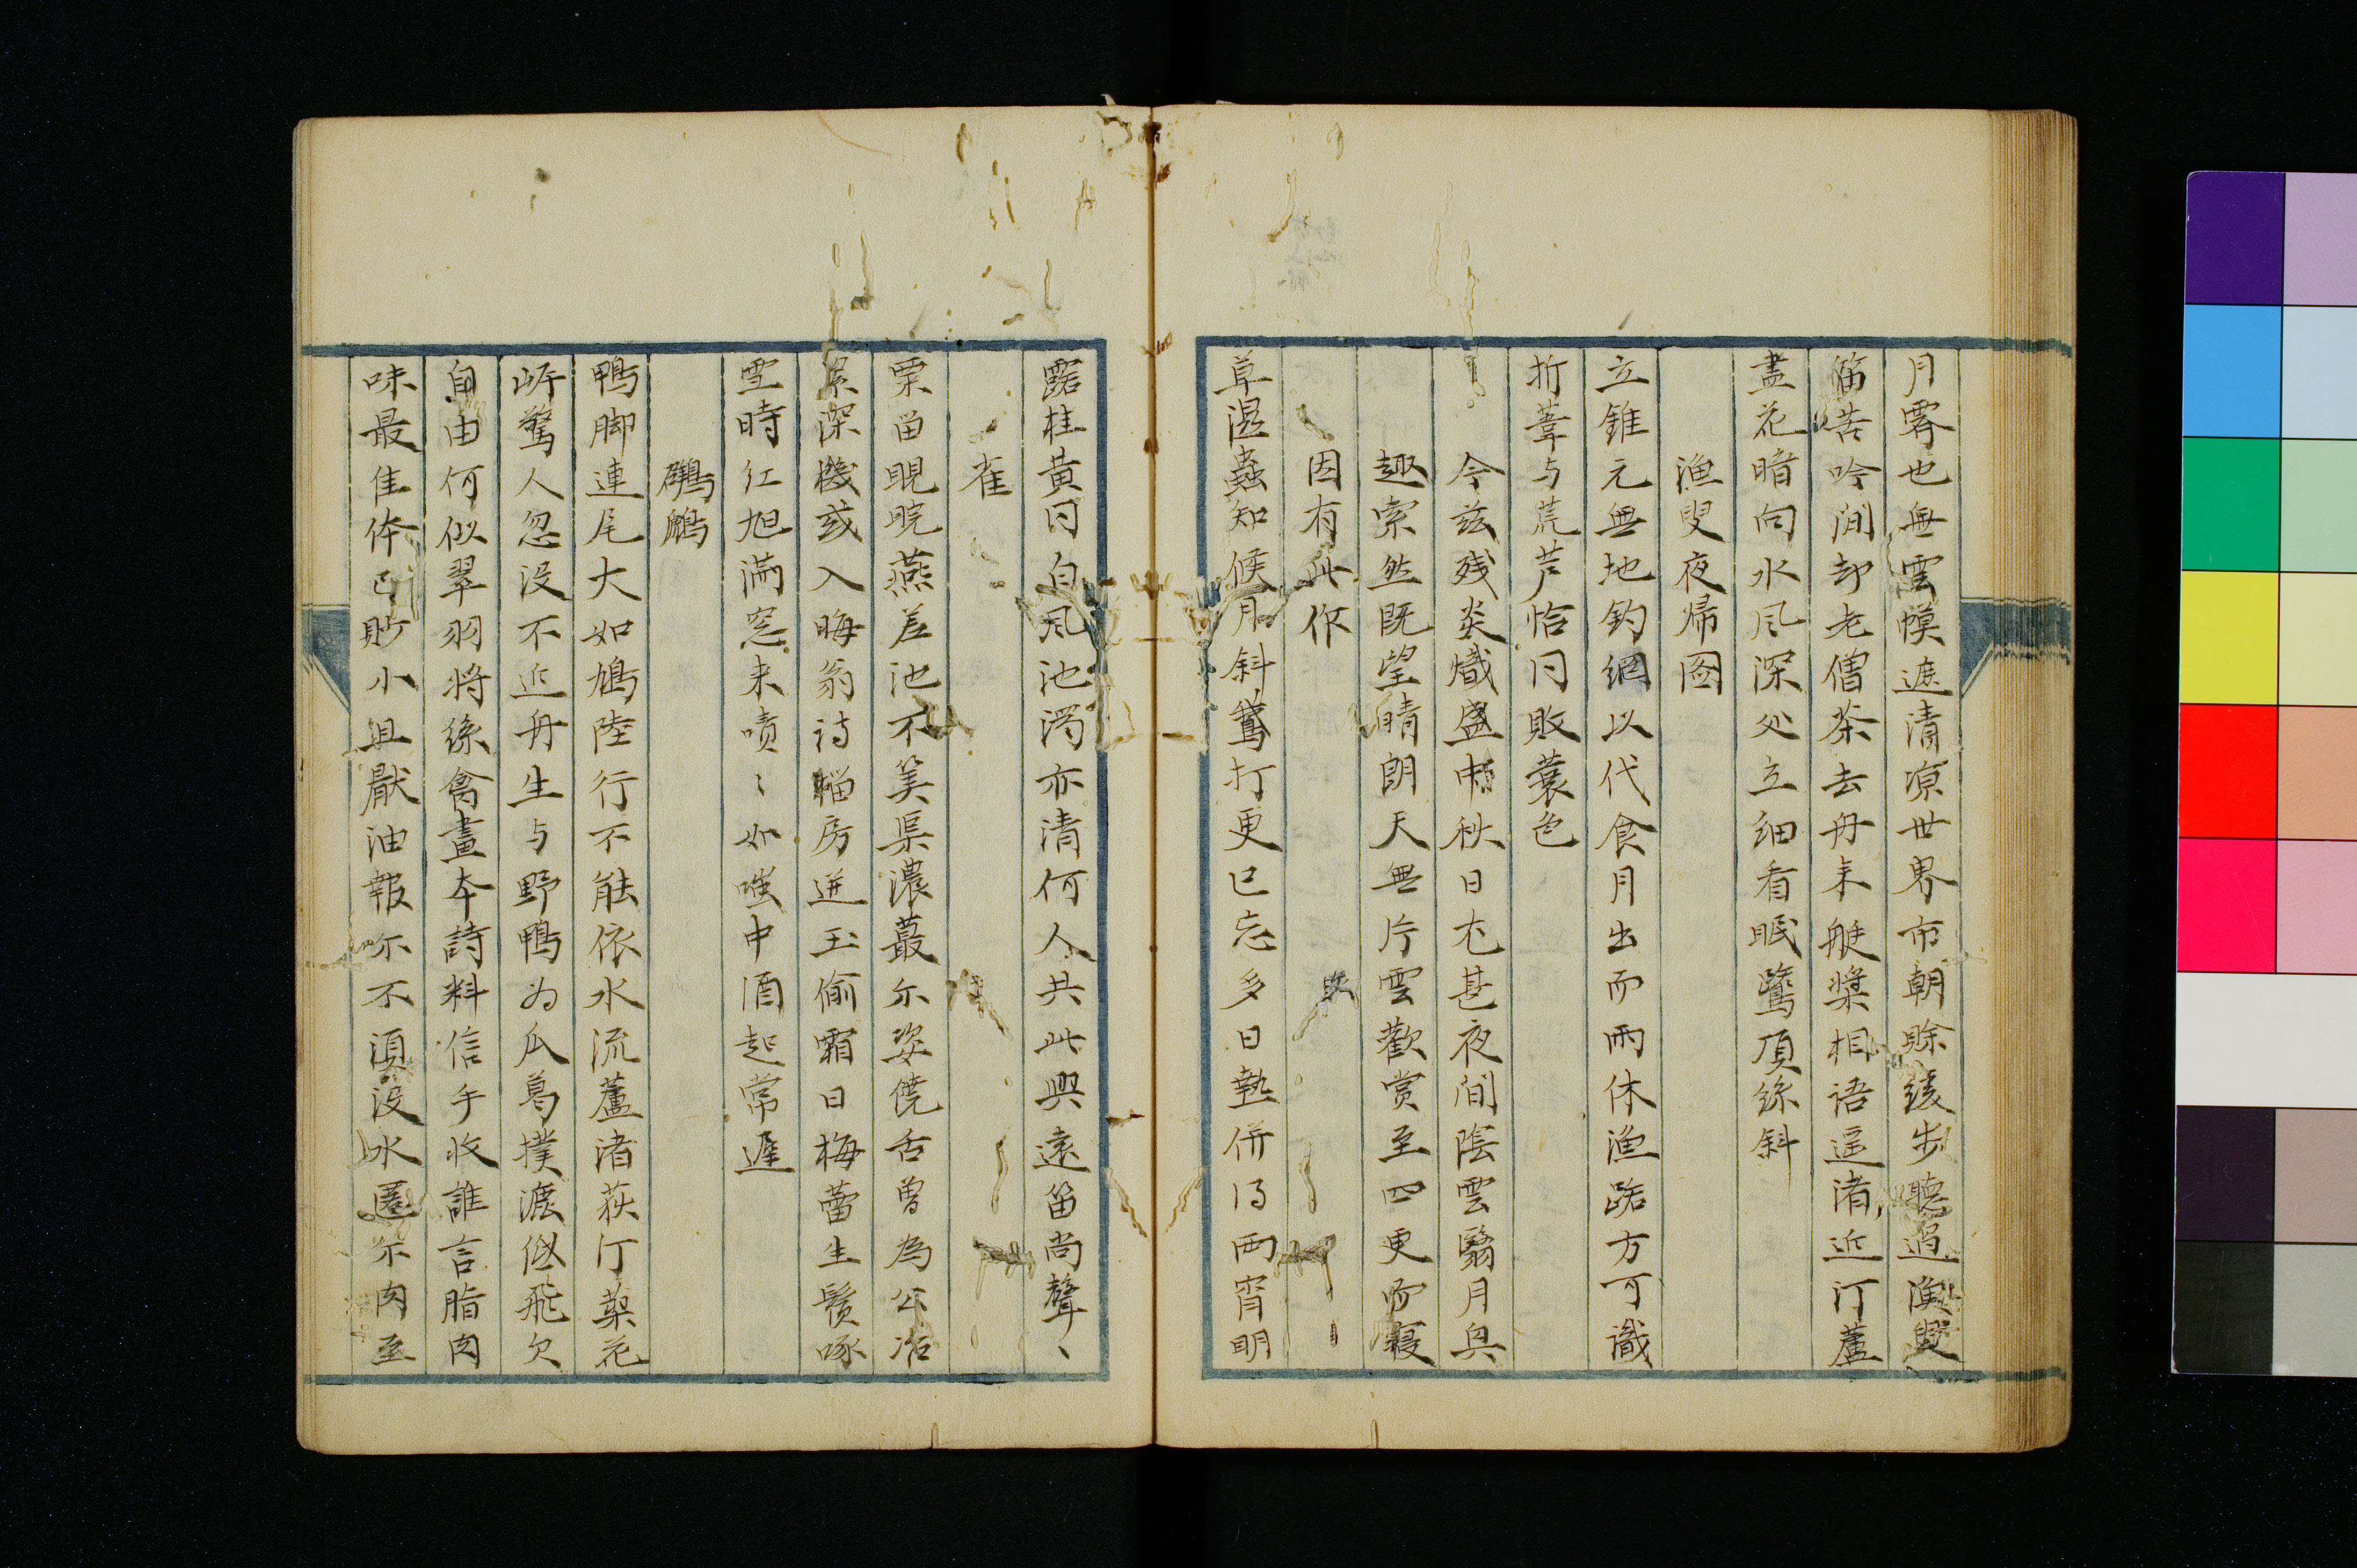 月霽也無雲幙遮清凉世界市朝賒緩歩聴過漁叟
笛苦吟閒却老僧茶去舟来艇槳相語遥渚近汀蘆
盡花暗向水风深处立细看眠鷺頂絲斜
漁叟夜帰图
立錐元無地釣網以代食月出而雨休漁蹊方可識
折葦与荒芦恰同敗蓑色
今兹残炎熾盛中秋日尤甚夜间陰雲翳月與
趣索然既望晴朗天無片雲歡赏至四更而寝
因有此作
草濕蟲知候月斜鵞打更已忘多日熱併得両宵明
露桂黄同白风池濁亦清何人共此興遠笛尚聲〻
雀
栗留睍睆燕差池不羡渠濃蕞尒姿饒舌曽為公冶
累深機或入晦翁詩榴房迸玉偷霜日梅蕾生鬚啄
雪時红旭満窓来嘖〻如嗤中酒起常遅
鸊鷉
鴨脚連尾大如鳩陸行不能依水流蘆渚荻汀蘂花
岍驚人忽没不近舟生与野鴨为瓜葛撲漉低飛欠
自由何似翠羽将絲禽畫本詩料信手收誰言脂肉
味最佳体已貯小且厭油報尒不湏没水匿尒肉至